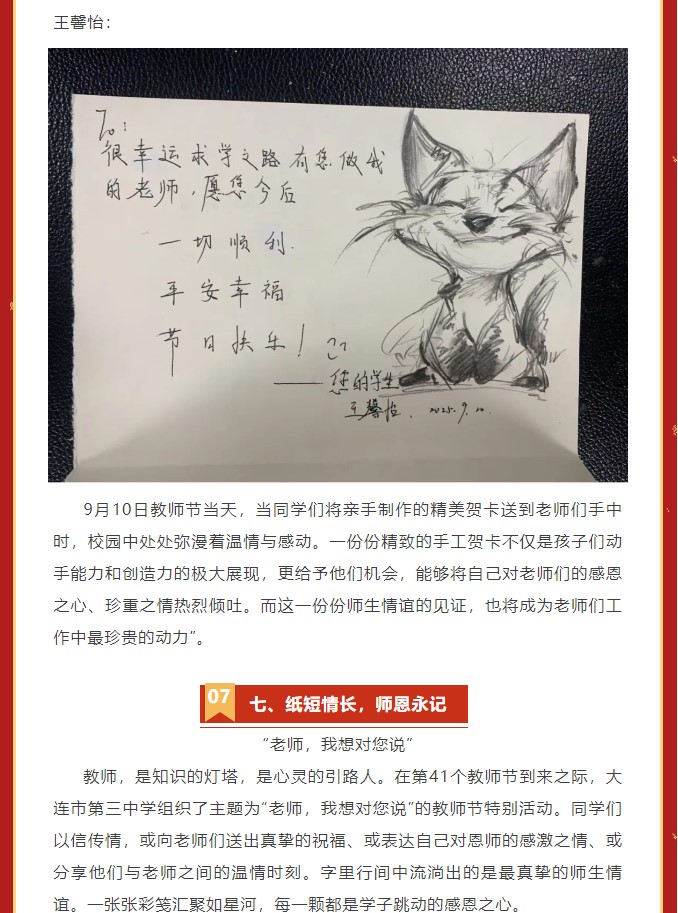 王馨怡：
To：
很幸运求学之路有您做我
的老师，愿您今后
一切顺利.
平安幸福
节日快乐！
——您的学生
王馨怡. 2025.9.10.
9月10日教师节当天，当同学们将亲手制作的精美贺卡送到老师们手中
时，校园中处处弥漫着温情与感动。一份份精致的手工贺卡不仅是孩子们动
手能力和创造力的极大展现，更给予他们机会，能够将自己对老师们的感恩
之心、珍重之情热烈倾吐。而这一份份师生情谊的见证，也将成为老师们工
作中最珍贵的动力”。
07
七、纸短情长，师恩永记
“老师，我想对您说”
教师，是知识的灯塔，是心灵的引路人。在第41个教师节到来之际，大
连市第三中学组织了主题为“老师，我想对您说”的教师节特别活动。同学们
以信传情，或向老师们送出真挚的祝福、或表达自己对恩师的感激之情、或
分享他们与老师之间的温情时刻。字里行间中流淌出的是最真挚的师生情
谊。一张张彩笺汇聚如星河，每一颗都是学子跳动的感恩之心。